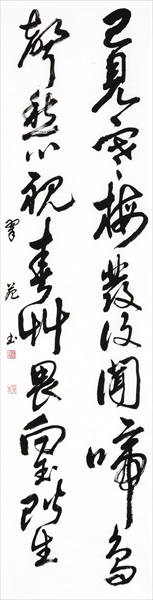 已見寒梅發復聞啼鳥
聲愁心視春艸畏向玉階生
翠苑書